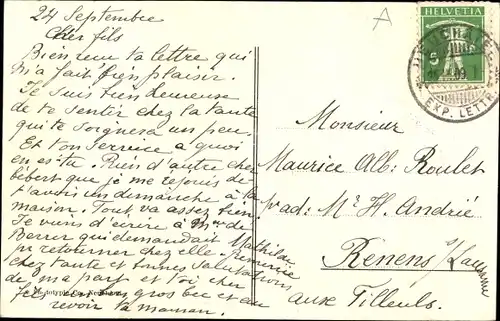 24 Septembre
Cher fils
Bien reçu ta lettre qui
m'a fait bien plaisir.
Je suis bien heureuse
de te sentir chez ta tante
qui te soignera un peu.
Et ton service a quoi
en es-tu. Rien d'autre cher
bébert que je me rejouis de
t'avoir un dimanche à la
maison. Tout va assez bien
Je viens d'écrire à Mme de
Berrer qui demandait Mathilde
p. retourner chez elle.
chez tante et bonnes salutations
de ma part et toi cher
fils gros bec et au
revoir ta maman.
A
HELVETIA
5
NEUCHATEL
EXP. LETTR.
Monsieur
Maurice Alb: Roulet
p. ad: Mr H. Andrié
Renens s/ Lausanne
aux Tilleuls.